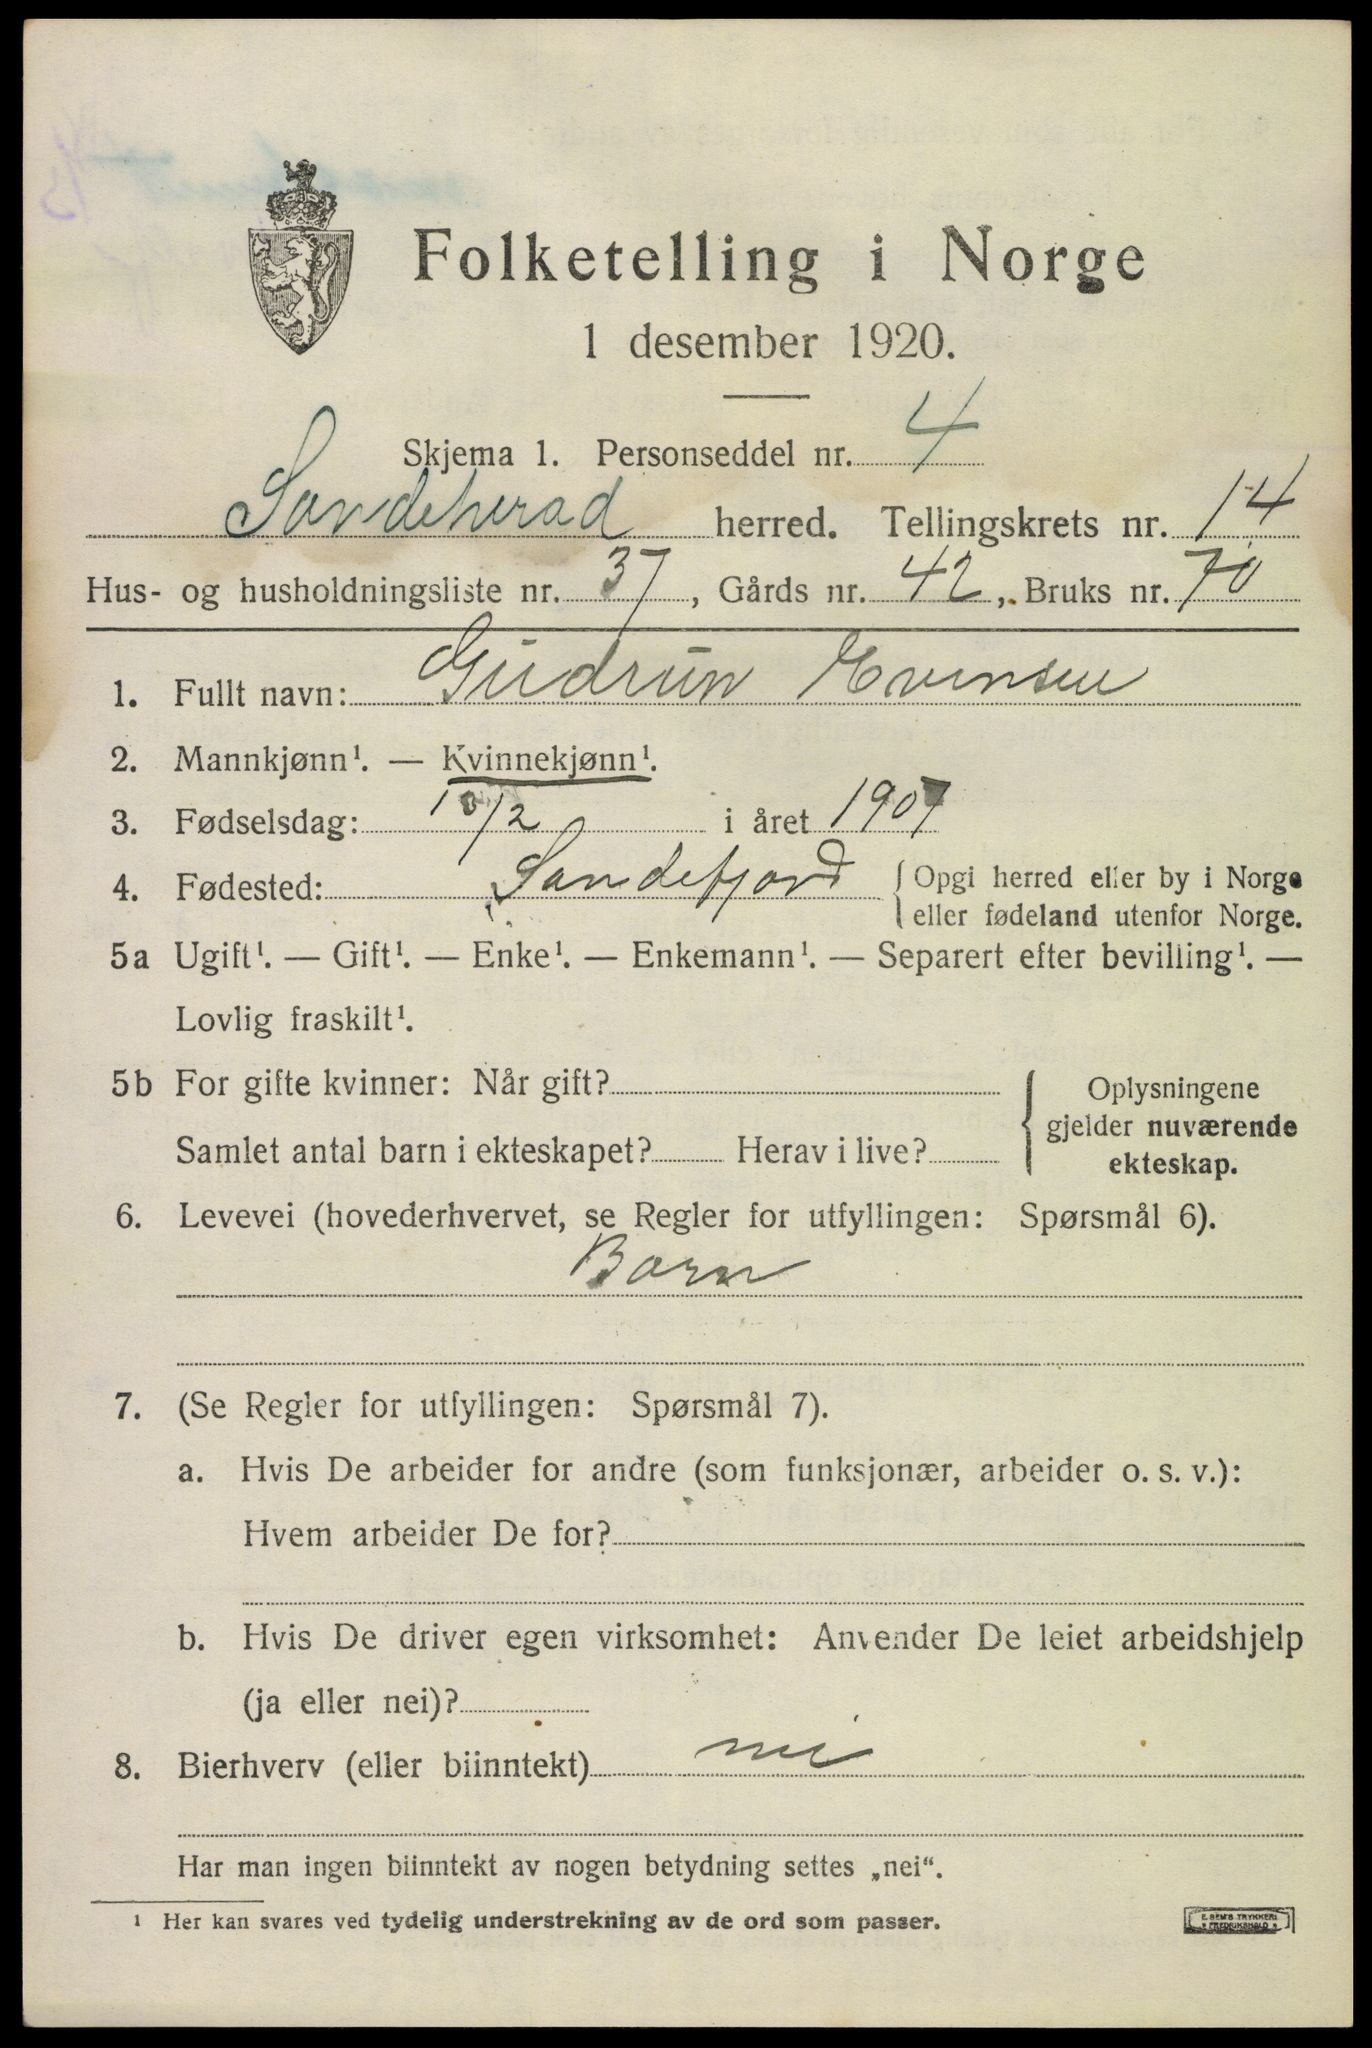 Folketelling i Norge
1 desember 1920.
Skjema 1. Personseddel nr. 4
Sandeherad herred. Tellingskrets nr. 14
Hus- og husholdningsliste nr. 37, Gårds nr. 42, Bruks nr. 70
1. Fullt navn: Gudrun Evensen
2. Mannkjønn¹. — Kvinnekjønn¹.
3. Fødselsdag: 13/2 i året 1907
4. Fødested: Sandefjord { Opgi herred eller by i Norge
eller fødeland utenfor Norge.
5a Ugift¹. — Gift¹. — Enke¹. — Enkemann¹. — Separert efter bevilling¹. —
Lovlig fraskilt¹.
5b For gifte kvinner: Når gift?
Samlet antal barn i ekteskapet? Herav i live?
{ Oplysningene
gjelder nuværende
ekteskap.
6. Levevei (hovederhvervet, se Regler for utfyllingen: Spørsmål 6).
Barn
7. (Se Regler for utfyllingen: Spørsmål 7).
a. Hvis De arbeider for andre (som funksjonær, arbeider o. s. v.):
Hvem arbeider De for?
b. Hvis De driver egen virksomhet: Anvender De leiet arbeidshjelp
(ja eller nei)?
8. Bierhverv (eller biinntekt) nei
Har man ingen biinntekt av nogen betydning settes „nei“.
¹ Her kan svares ved tydelig understrekning av de ord som passer.
E. SEM'S TRYKKERI
FREDRIKSHALD